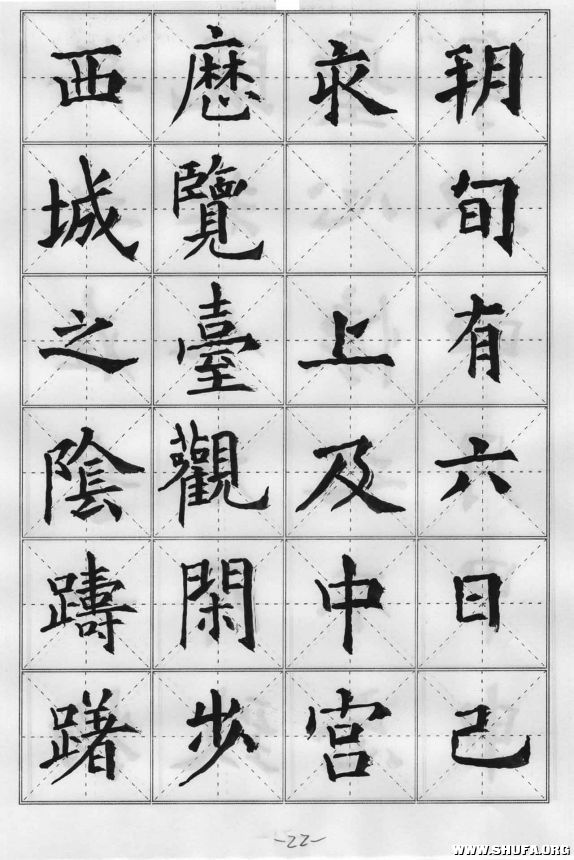 朔旬有六日己
亥上及中宮
歷覽臺觀閑步
西城之陰躊躇
-22-
WWW.SHUFA.ORG